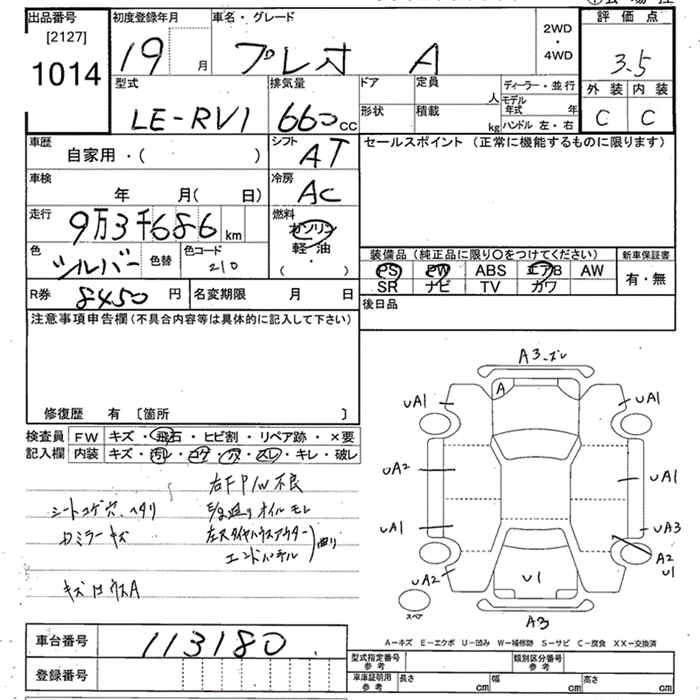 出品番号
[2127]
1014
初度登録年月
19
月
車名・グレード
プレオ A
2WD
・
4WD
評価点
3.5
外装 内装
C C
型式
LE-RV1
排気量
660cc
ドア
形状
定員
人
積載
kg
ディーラー・並行
モデル年式 年
ハンドル 左・右
車歴
自家用・( )
シフト
AT
セールスポイント (正常に機能するものに限ります)
車検
年 月( 日)
冷房
AC
走行
9万3千686 km
燃料
ガソリン
軽・油
( )
色
シルバー
色替
色コード
210
装備品(純正品に限り〇をつけてください)
PS PW ABS エアB AW
SR ナビ TV カワ
新車保証書
有・無
R券 8450 円
名変期限 月 日
後日品
注意事項申告欄(不具合内容等は具体的に記入して下さい)
修復歴 有 〔箇所 〕
検査員記入欄
FW キズ・飛石・ヒビ割・リペア跡・×要
内装 キズ・汚レ・コゲ・穴・スレ・キレ・破レ
右F P/W不良
シートコゲ穴、ヘタリ
オイルモレ
ミラーキズ
エンドパネル
A3 ズレ
A
UA1 UA1
UA2 UA1
UA1 UA3
UA2 U1 A2 U1
スペア
A3
A-キズ E-エクボ U-凹み W-補修跡 S-サビ C-腐食 XX-交換済
車台番号 113180
登録番号
型式指定番号 参考
類別区分番号 参考
車庫証明用 参考
長さ cm 幅 cm 高さ cm